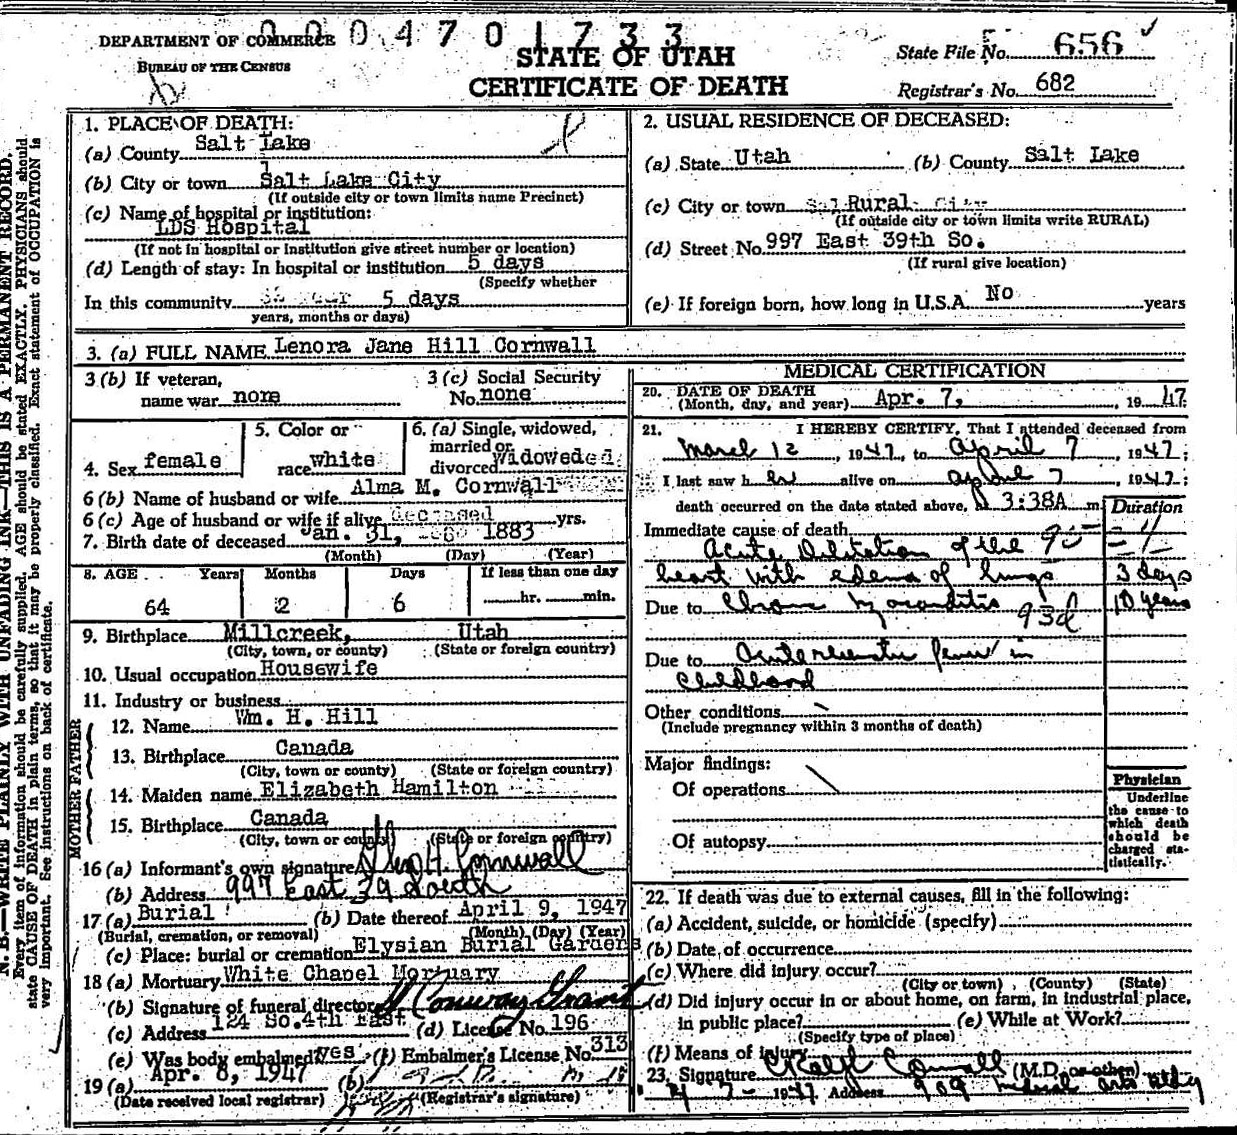 0004701733
DEPARTMENT OF COMMERCE
BUREAU OF THE CENSUS
STATE OF UTAH
CERTIFICATE OF DEATH
State File No. 656
Registrar's No. 682
1. PLACE OF DEATH:
(a) County Salt Lake
(b) City or town Salt Lake City
(If outside city or town limits name Precinct)
(c) Name of hospital or institution:
LDS Hospital
(If not in hospital or institution give street number or location)
(d) Length of stay: In hospital or institution 5 days
(Specify whether
In this community 5 days
years, months or days)
2. USUAL RESIDENCE OF DECEASED:
(a) State Utah (b) County Salt Lake
(c) City or town Rural
(If outside city or town limits write RURAL)
(d) Street No. 997 East 39th So.
(If rural give location)
(e) If foreign born, how long in U.S.A. No years
3. (a) FULL NAME Lenora Jane Hill Cornwall
3 (b) If veteran,
name war none
3 (c) Social Security
No. none
4. Sex female
5. Color or
race white
6. (a) Single, widowed,
married or
divorced Widoweded
6 (b) Name of husband or wife Alma M. Cornwall
6 (c) Age of husband or wife if alive deceased yrs.
7. Birth date of deceased Jan. 31, 1883
(Month) (Day) (Year)
8. AGE Years Months Days If less than one day
64 2 6 hr. min.
9. Birthplace Millcreek, Utah
(City, town, or county) (State or foreign country)
10. Usual occupation Housewife
11. Industry or business
FATHER
12. Name Wm. H. Hill
13. Birthplace Canada
(City, town or county) (State or foreign country)
MOTHER
14. Maiden name Elizabeth Hamilton
15. Birthplace Canada
(City, town or county) (State or foreign country)
16 (a) Informant's own signature Cornwall
(b) Address 997 East 39 South
17 (a) Burial (b) Date thereof April 9, 1947
(Burial, cremation, or removal) (Month) (Day) (Year)
(c) Place: burial or cremation Elysian Burial Gardens
18 (a) Mortuary White Chapel Mortuary
(b) Signature of funeral director Conway Grant
(c) Address 124 So. 4th East (d) License No. 196
(e) Was body embalmed? yes (f) Embalmer's License No. 313
19 (a) Apr. 8, 1947 (b)
(Date received local registrar) (Registrar's signature)
MEDICAL CERTIFICATION
20. DATE OF DEATH
(Month, day, and year) Apr. 7, 1947
21. I HEREBY CERTIFY, That I attended deceased from
March 12, 1947, to April 7, 1947;
I last saw her alive on April 7, 1947;
death occurred on the date stated above, 3:38A m
Duration
Immediate cause of death
Acute Dilatation of the
heart with edema of lungs 3 days
Due to Chronic Myocarditis 93d 10 years
Due to Acute rheumatic fever in
childhood
Other conditions
(Include pregnancy within 3 months of death)
Major findings:
Of operations
Of autopsy
Physician
Underline
the cause to
which death
should be
charged sta-
tistically.
22. If death was due to external causes, fill in the following:
(a) Accident, suicide, or homicide (specify)
(b) Date of occurrence
(c) Where did injury occur?
(City or town) (County) (State)
(d) Did injury occur in or about home, on farm, in industrial place,
in public place? (e) While at Work?
(Specify type of place)
(f) Means of injury
23. Signature Ralph Cornwall (M.D. or other)
4-7-1947 Address 909 Medical Arts Bldg
N. B.—WRITE PLAINLY WITH UNFADING INK—THIS IS A PERMANENT RECORD.
Every item of information should be carefully supplied. AGE should be stated EXACTLY. PHYSICIANS should
state CAUSE OF DEATH in plain terms, so that it may be properly classified. Exact statement of OCCUPATION is
very important. See instructions on back of certificate.